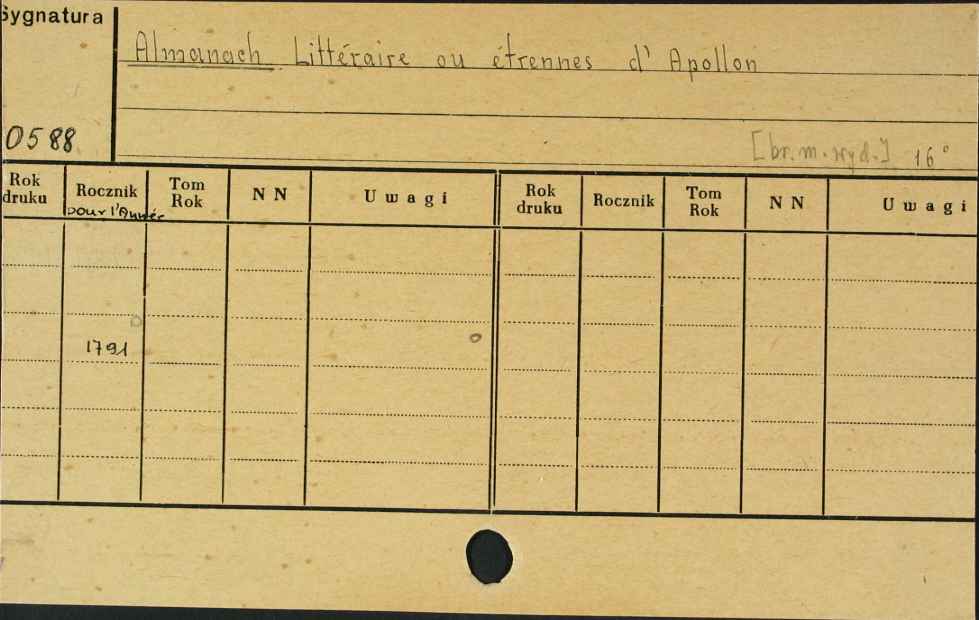 Sygnatura
Almanach Littéraire ou étrennes d'Apollon
0588
[br. m. wyd.] 16°
Rok druku Rocznik Tom Rok N N Uwagi Rok druku Rocznik Tom Rok N N Uwagi
pour l'Année
1791